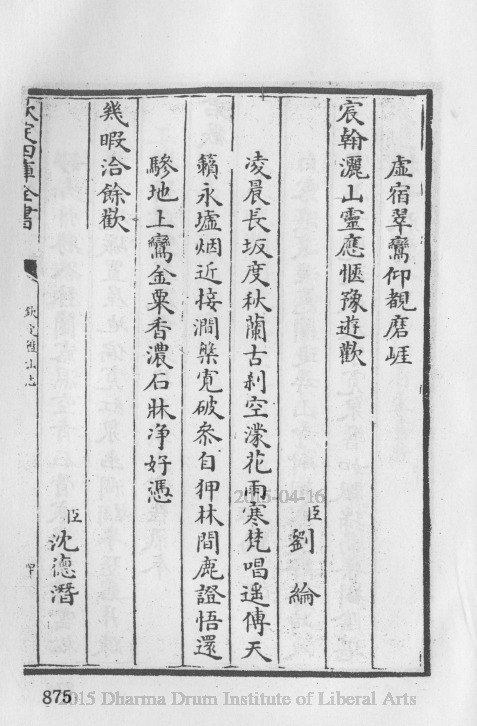 虛宿翠鸞仰覩磨崕
宸翰灑山靈應愜豫遊歡
臣劉綸
凌晨長坂度秋蘭古刹空濛花雨寒梵唱遥傳天
籟永墟烟近接澗槃寛破叅自狎林間鹿證悟還
驂地上鸞金粟香濃石牀净好憑
幾暇洽餘歡
臣沈德潛
欽定四庫全書
欽定盤山志
2015-04-16
875
2015 Dharma Drum Institute of Liberal Arts